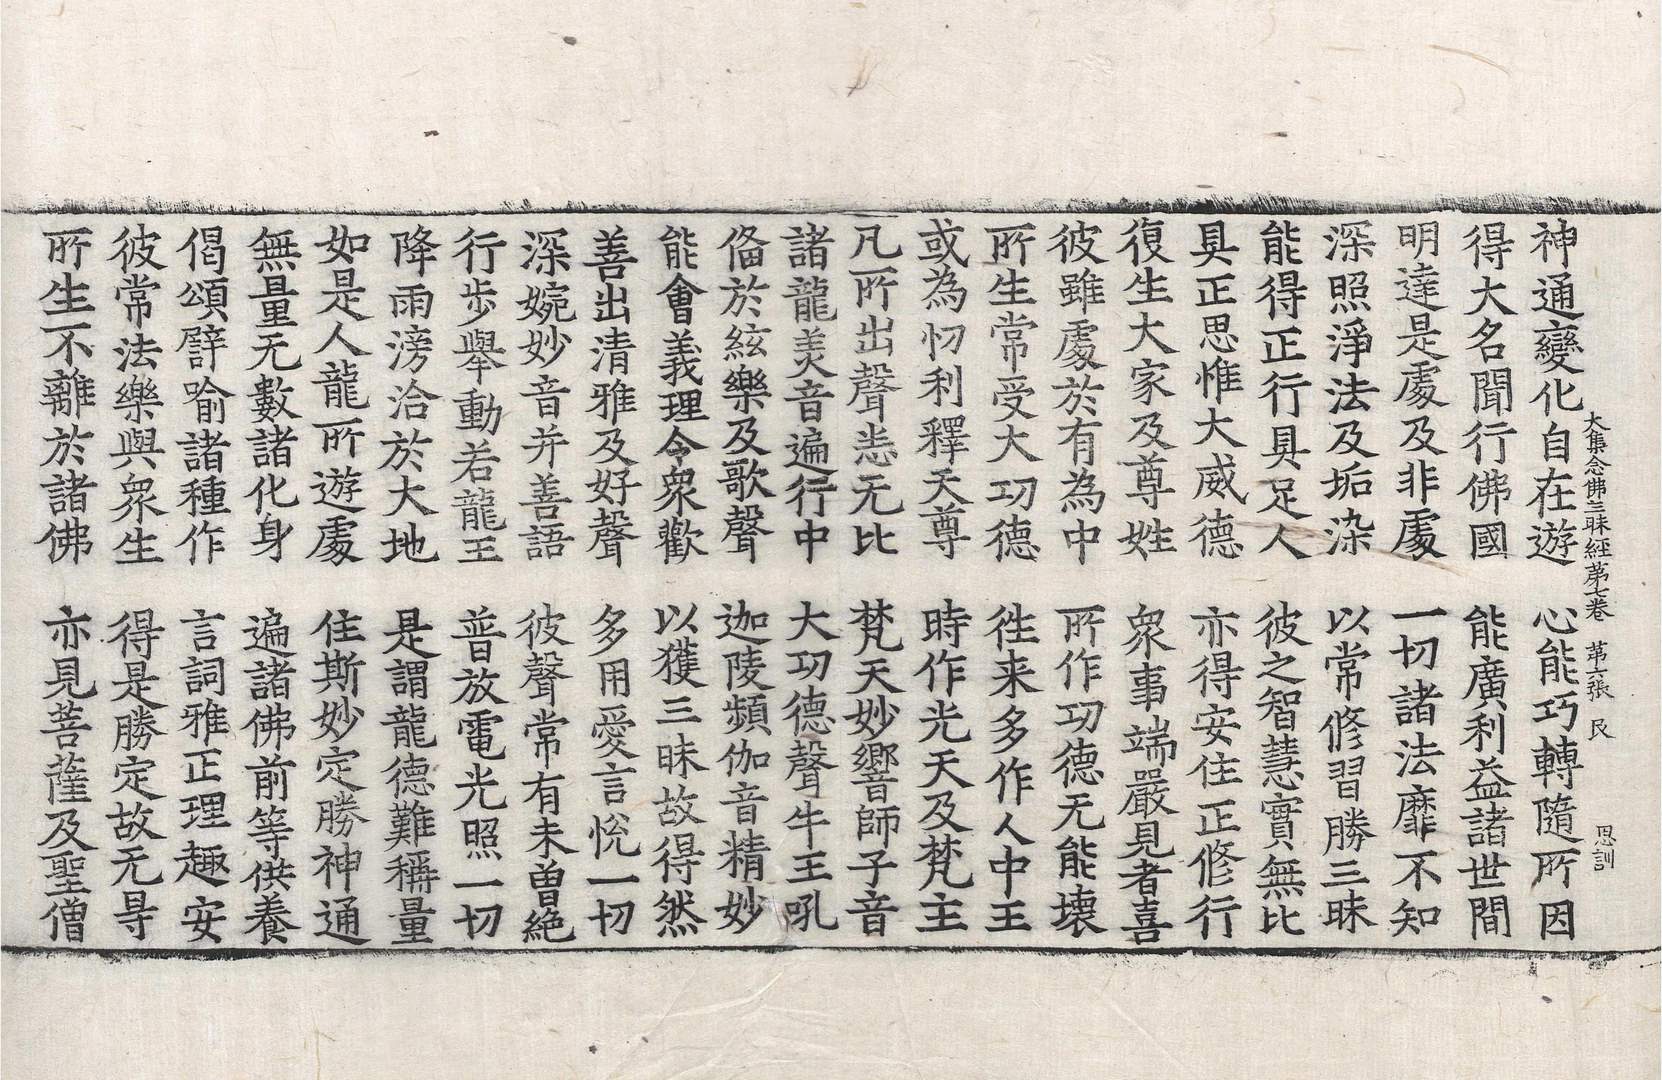 神通變化自在遊　心能巧轉隨所因
大集念佛三昧經第七卷　第六張　民
思訓
得大名聞行佛國　能廣利益諸世間
明達是處及非處　一切諸法靡不知
深照淨法及垢染　以常修習勝三昧
能得正行具足人　彼之智慧實無比
具正思惟大威德　亦得安住正修行
復生大家及尊姓　衆事端嚴見者喜
彼雖處於有為中　所作功德无能壞
所生常受大功德　徃来多作人中王
或為忉利釋天尊　時作光天及梵主
凡所出聲恙无比　梵天妙響師子音
諸龍美音遍行中　大功德聲牛王吼
俻於絃樂及歌聲　迦陵頻伽音精妙
能會義理令衆歡　以獲三昧故得然
善出清雅及好聲　多用愛言悅一切
深婉妙音并善語　彼聲常有未曽絶
行步舉動若龍王　普放電光照一切
降雨滂洽於大地　是謂龍德難稱量
如是人龍所遊處　住斯妙定勝神通
無量无數諸化身　遍諸佛前等供養
偈頌譬喻諸種作　言詞雅正理趣安
彼常法樂與衆生　得是勝定故无㝵
所生不離於諸佛　亦見菩薩及聖僧